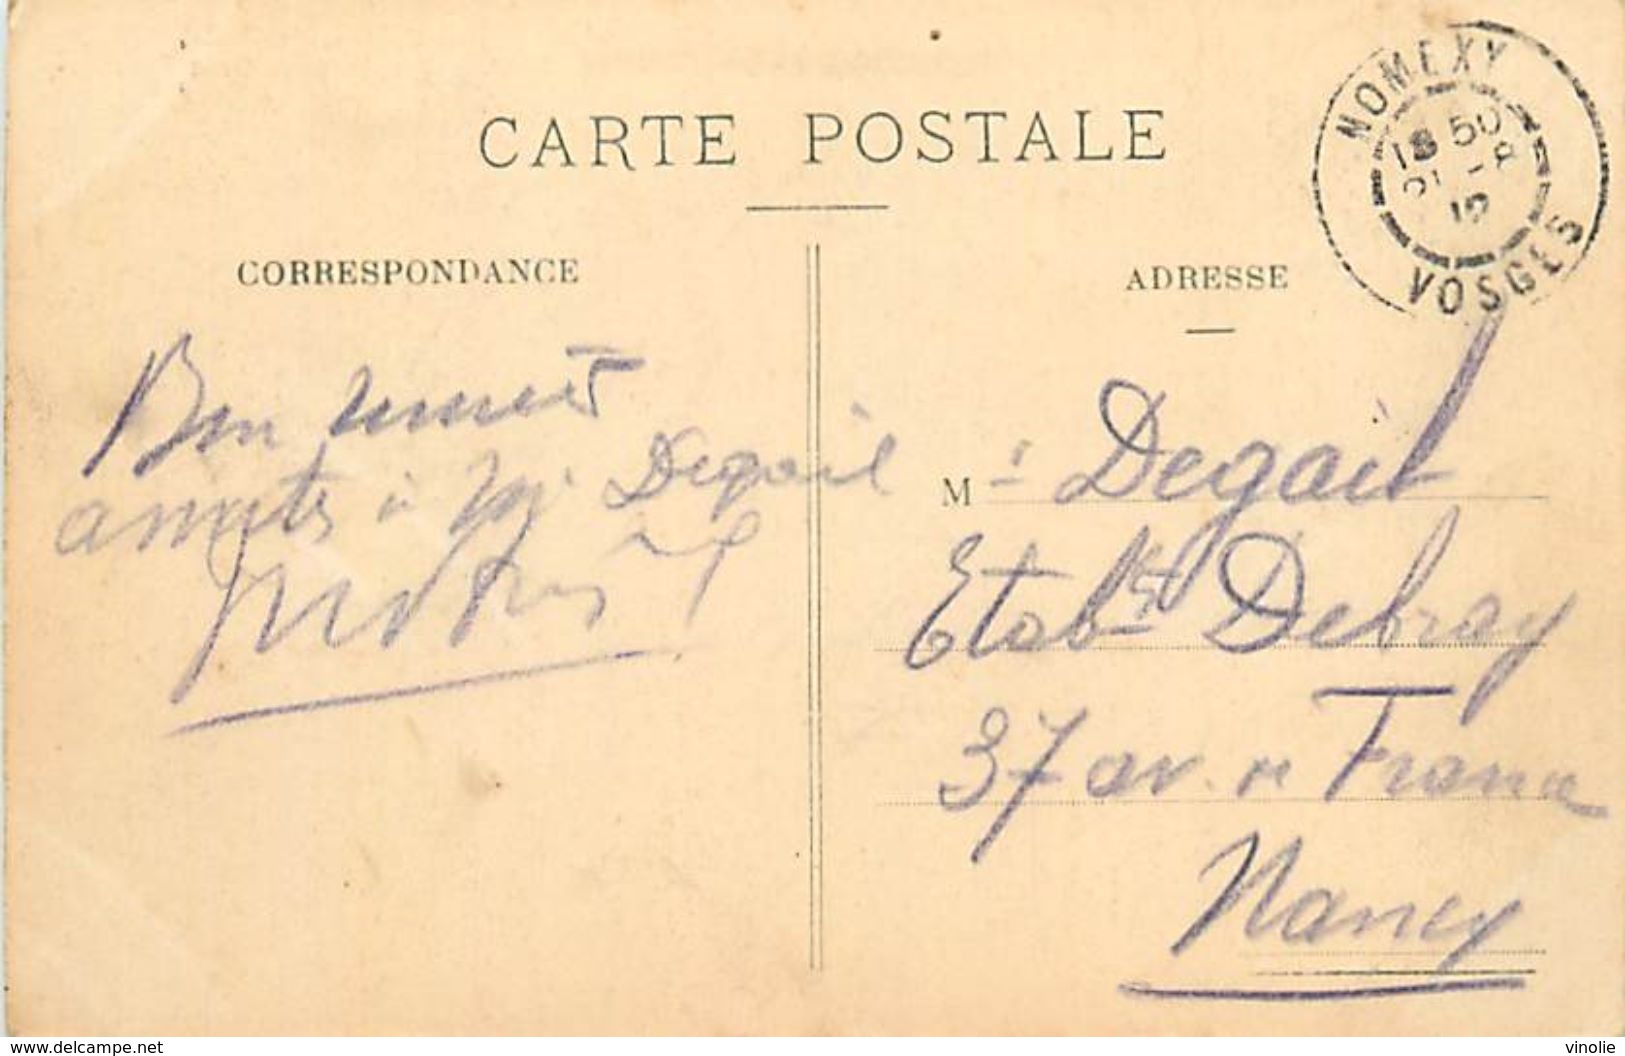 CARTE POSTALE
NOMEXY
18 50
VOSGES
CORRESPONDANCE
Bon
amitiés à Mr Degail
ADRESSE
M r Degail
Etabts Debray
37 av. de France
Nancy
www.delcampe.net
vinolie